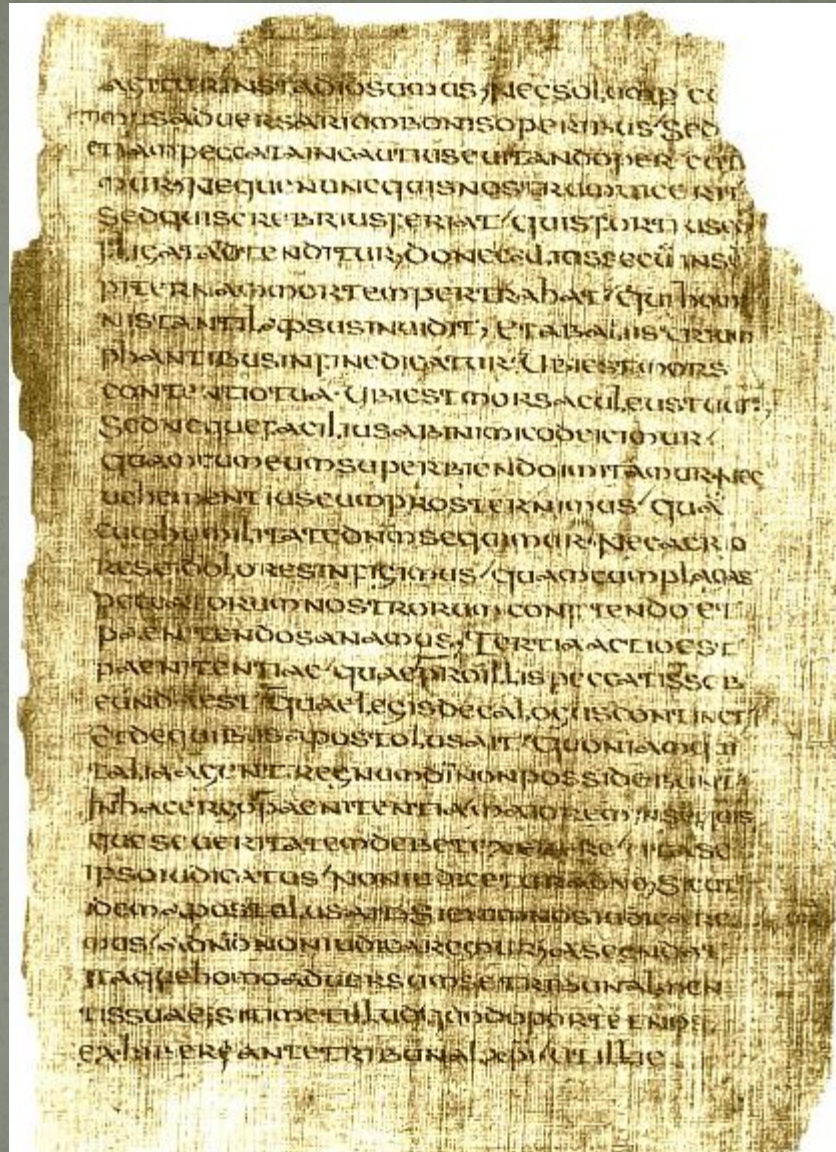 AGITURINSTADIOSUMUS,NECSOLUMP CU
TIMUSADUERSARIUMBONISOPERIBUS/SED
ETIAMPECCATAINCAUTIUSEUITANDOPERCUTI
MUR,NEQUENUNCQUISNOSTRUMUICERIT
SEDQUISCREBRIUSFERIAT/QUISFORTIUSCO
FLIGATADTENDITUR,DONECALIUSSECŪINSĒ
PITERNAMMORTEMPERTRAHAT/QUIHOMI
NISTANTILAPSUSINUIDIT,ETABALIISTRIUM
PHANTIBUSINFINEDICATUR·UBIESTMORS
CONTENTIOTUA·UBIESTMORSACULEUSTUUS,
SEDNEQUEFACILIUSABINIMICODEICIMUR/
QUAMCUMEUMSUPERBIENDOIMITAMUR·NEC
UEHEMENTIUSEUMPROSTERNIMUS/QUĀ
CUMHUMILITATEDNMSEQUIMUR·NECACRIO
RESEIDOLORESINFIGIMUS/QUAMCUMPLAGAS
PECCATORUMNOSTRORUMCONFITENDOET
PAENITENDOSANAMUS,TERTIAACTIOEST
PAENITENTIAE/QUAEPROILLISPECCATISSUB
EUNDAEST/QUAELEGISDECALOGUSCONTINET,
ETDEQUIBUSAPOSTOLUSAIT/QUONIAMQUI
TALIAAGUNTREGNUMDĪNONPOSSIDEBUNT·
INHACERGOPAENITENTIAMAIOREMINSEQUIS
QUESEUERITATEMDEBETEXERCERE/UTASE
IPSOIUDICATUS/NONIUDICETURADNO,SICUT
IDEMAPOSTOLUSAIT,SIENIMNOSIUDICARE
MUS/ADNŌNONIUDICAREMUR,ASCENDAT
ITAQUEHOMOADUERSUMSETRIBUNALMEN
TISSUAE,SITIMETILLUDQUODOPORTETNOS
EXHIBEREANTETRIBUNALXPI/UTILLIC